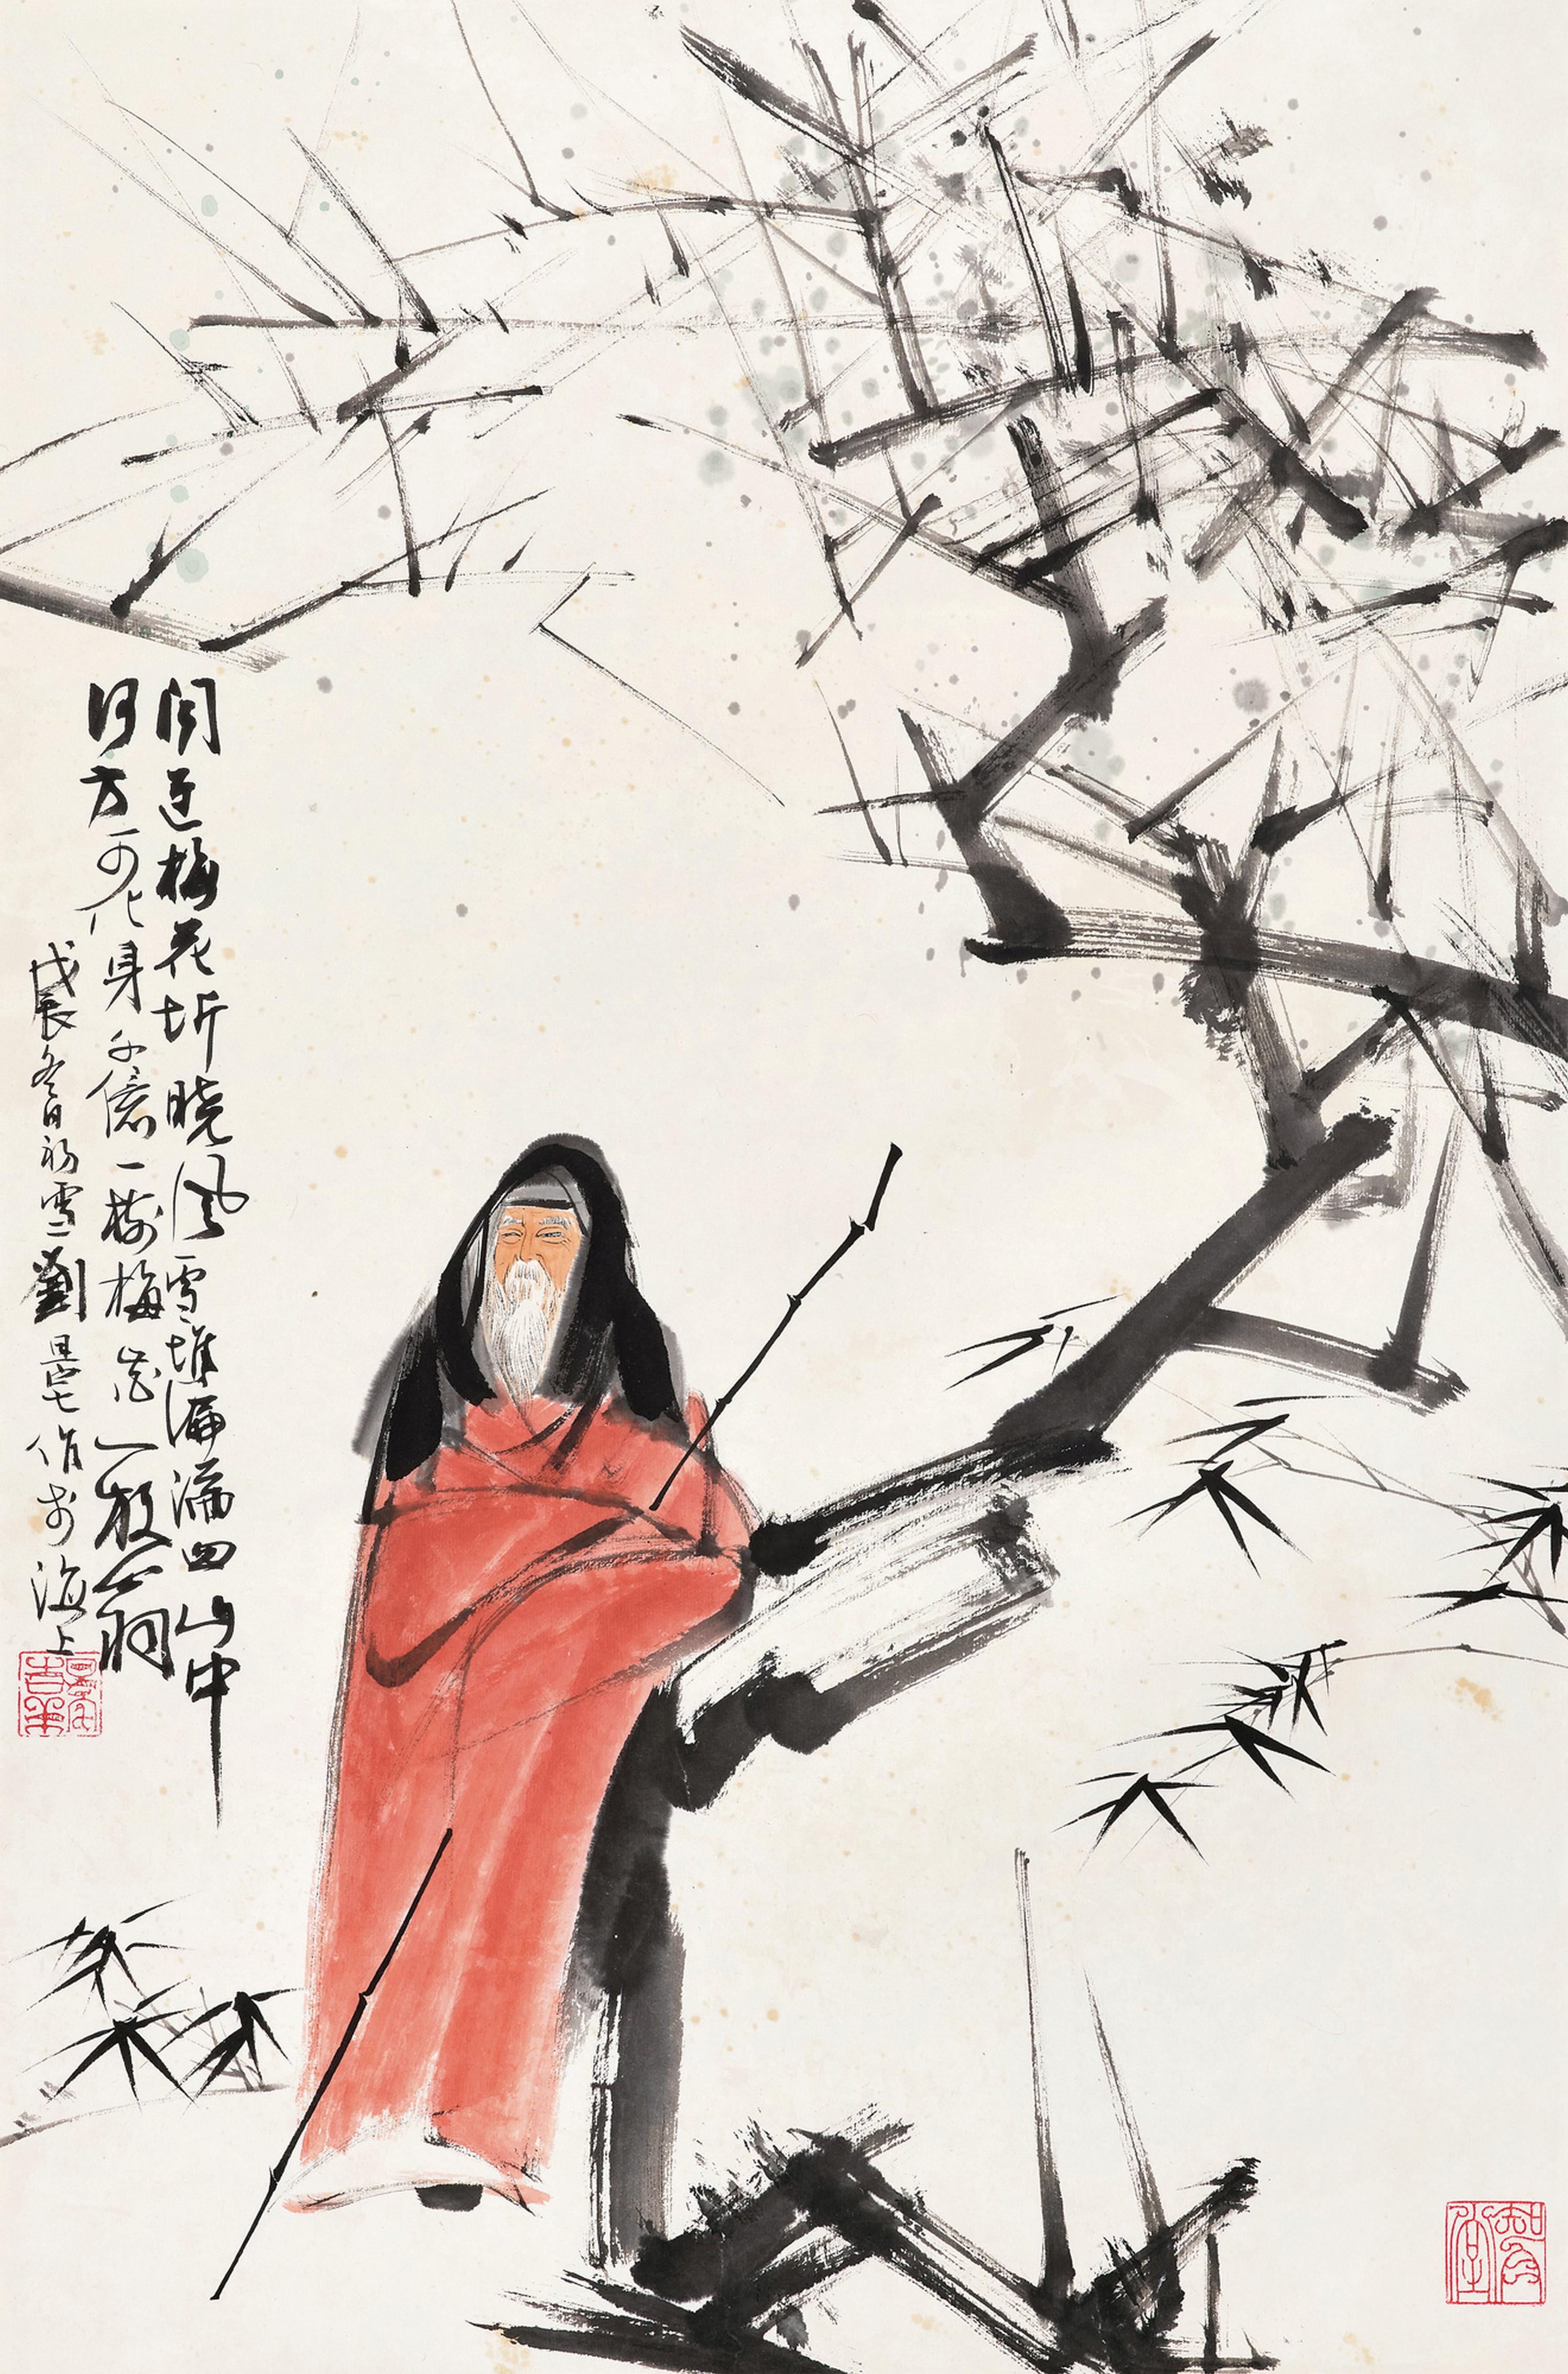 闻道梅花坼晓风雪堆遍满四山中
何方可化身千億一樹梅花一放翁
戊辰冬日初雪劉旦宅作於海上